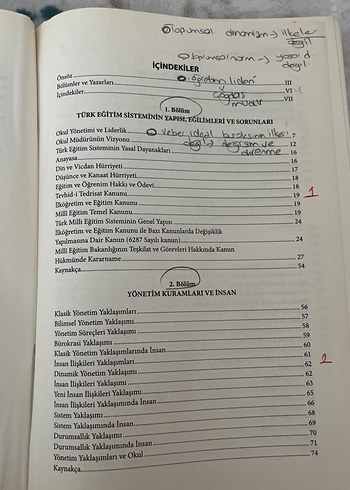 Toplumsal dinamizm → ilkeler
değil
Toplumsal norm → yasa d.
değil.
İÇİNDEKİLER
Önsöz III
Bölümler ve Yazarları VI
İçindekiler VII
öğreten lider
1. Bölüm
TÜRK EĞİTİM SİSTEMİNİN YAPISI, EĞİLİMLERİ VE SORUNLARI
Okul Yönetimi ve Liderlik 7
Okul Müdürünün Vizyonu 12
Türk Eğitim Sisteminin Yasal Dayanakları 16
Weber ideal
değişim ve
direnme
Anayasa 16
Din ve Vicdan Hürriyeti 17
Düşünce ve Kanaat Hürriyeti 18
Eğitim ve Öğrenim Hakkı ve Ödevi 18
Tevhid-i Tedrisat Kanunu 19
1
İlköğretim ve Eğitim Kanunu 19
Milli Eğitim Temel Kanunu 19
Türk Milli Eğitim Sisteminin Genel Yapısı 24
İlköğretim ve Eğitim Kanunu ile Bazı Kanunlarda Değişiklik
Yapılmasına Dair Kanun (6287 Sayılı kanun) 24
Milli Eğitim Bakanlığının Teşkilat ve Görevleri Hakkında Kanun
Hükmünde Kararname 27
Kaynakça 54
2. Bölüm
YÖNETİM KURAMLARI VE İNSAN
Klasik Yönetim Yaklaşımları 56
Bilimsel Yönetim Yaklaşımı 57
Yönetim Süreçleri Yaklaşımı 58
Bürokrasi Yaklaşımı 59
Klasik Yönetim Yaklaşımlarında İnsan 60
İnsan İlişkileri Yaklaşımları 61
2
Dinamik Yönetim Yaklaşımı 62
İnsan İlişkileri Yaklaşımı 62
Yeni İnsan İlişkileri Yaklaşımı 63
İnsan İlişkileri Yaklaşımında İnsan 65
Sistem Yaklaşımı 66
Sistem Yaklaşımında İnsan 68
Durumsallık Yaklaşımı 69
Durumsallık Yaklaşımında İnsan 70
Yönetim Yaklaşımları ve Okul 71
Kaynakça 74